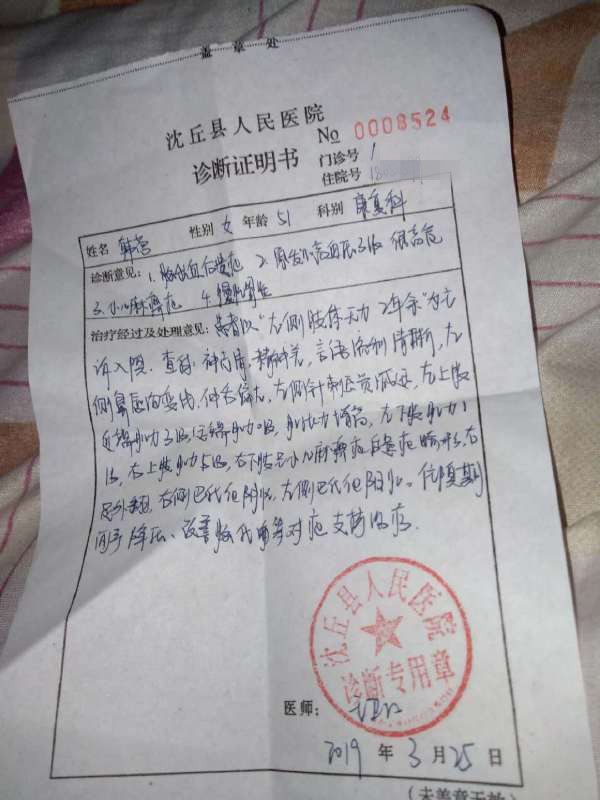 盖章处
沈丘县人民医院
№ 0008524
诊断证明书
门诊号 /
住院号
姓名 韩 性别 女 年龄 51 科别 康复科
诊断意见: 1. 脑出血后遗症 2. 原发性高血压3级 很高危
3. 小儿麻痹症 4.
治疗经过及处理意见: 患者以"左侧肢体无力2年余"为主
诉入院. 查体: 神志清, 精神差, 言语流利清晰, 左
侧鼻唇沟变浅, 伸舌偏左, 左侧针刺觉减退, 左上肢
近端肌力3级, 远端肌力0级, 肌张力增高, 左下肢肌力
级, 右上肢肌力5级, 右下肢呈小儿麻痹症后遗症畸形, 右
足外翻, 右侧巴氏征阴性, 左侧巴氏征阳性. 住院期
间予降压、改善脑代谢等对症支持治疗.
沈丘县人民医院
诊断专用章
医师:
2019 年 3 月 25 日
(未盖章无效)